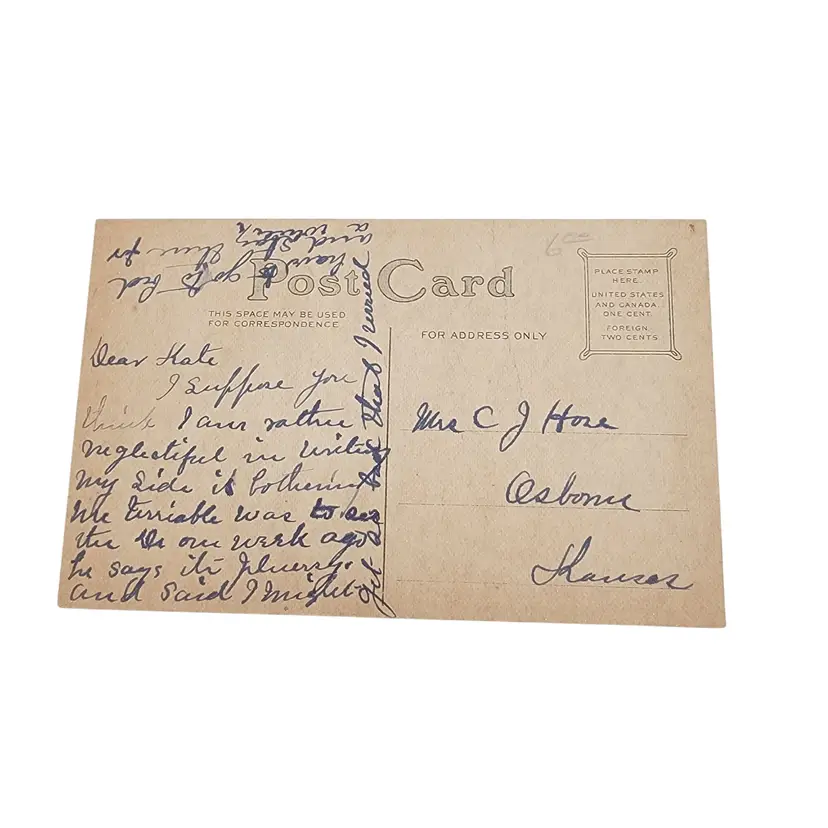 Post Card
THIS SPACE MAY BE USED
FOR CORRESPONDENCE
FOR ADDRESS ONLY
PLACE STAMP
HERE
UNITED STATES
AND CANADA
ONE CENT
FOREIGN
TWO CENTS
Dear Kate
I suppose you
think I am rather
neglectiful in writing
my side is bothering
me terriable was to see
the Dr one week ago
he says its Pluerry.
and said I might
get so bad that I would
have to go to bed
and stay there for
a while
Mrs C J Hose
Osborne
Kansas